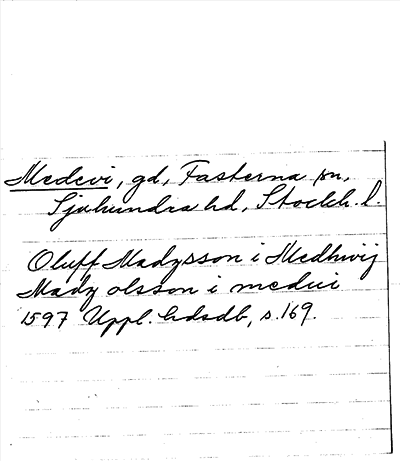 Medevi, gd, Fasterna sn,
Sjuhundra hd, Stockh. l.
Oluff Madzsson i Medhwij
Madz olsson i medui
1597 Uppl. hdsdb, s. 169.